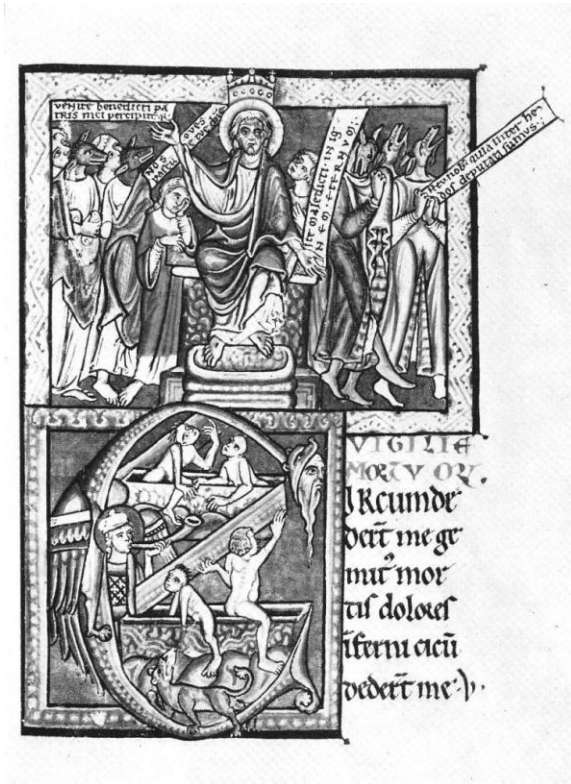 venite benedicti pa
tris mei percipite R
NOS
ite maledicti in ig
nem eternum
heu nobis quia inter he
dos deputati sumus
VIGILIE
MORTVORV
IRcumde
dert me ge
mit mor
tis dolores
iferni cicu
dedert me